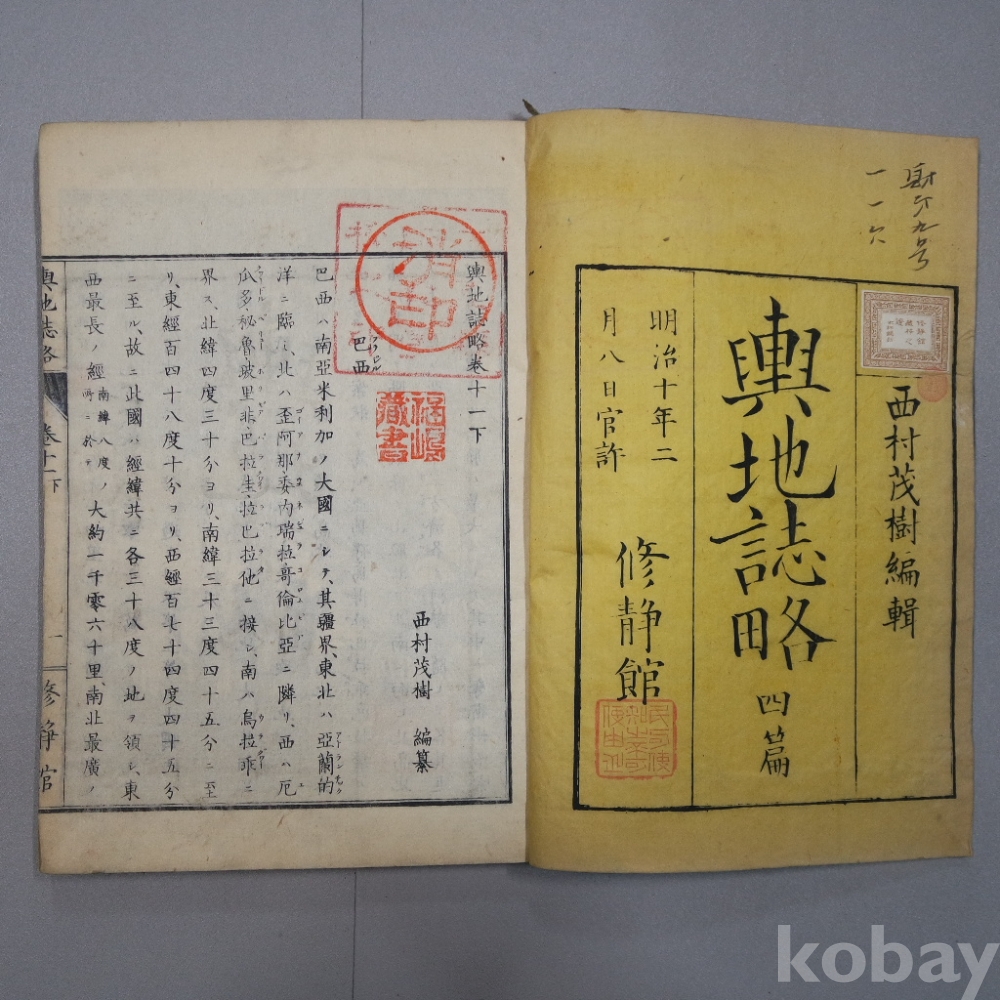 西村茂樹編輯
輿地誌略 四篇
明治十年二
月八日官許
修静館
輿地誌略卷十一下
巴西
西村茂樹 編纂
巴西ハ南亞米利加ノ大國ニシテ、其疆界、東北ハ亞蘭的
洋ニ臨ミ、北ハ歪阿那委内瑞拉哥倫比亞ニ隣リ、西ハ厄
瓜多秘魯玻里非巴拉圭拉巴拉他ニ接シ、南ハ烏拉乖ニ
界ス、北緯四度三十分ヨリ、南緯三十三度四十五分ニ至
リ、東經百四十八度十分ヨリ、西經百七十四度四十五分
ニ至ル、故ニ此國ハ經緯共ニ各三十八度ノ地ヲ領シ、東
西最長ノ經南緯八度ノ所ニ於テ大約一千零六十里、南北最廣ノ
輿地誌略
卷十一下
一
修静館
消印
福嶋
藏書
kobay